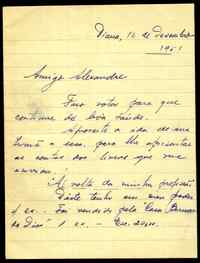 Viana, 12 de Dezembro
1951
Amigo Alexandre
Faço votos para que
continue de boa saude.
Aproveito a ida de sua
Irmã a essa, para lhe apresentar
as contas dos livros que me
enviou.
"A volta da minha profissão"
Deste tenho em meu poder
4 ex. - Foi vendido pela "Casa
do Dias" 1 ex. - Esc.